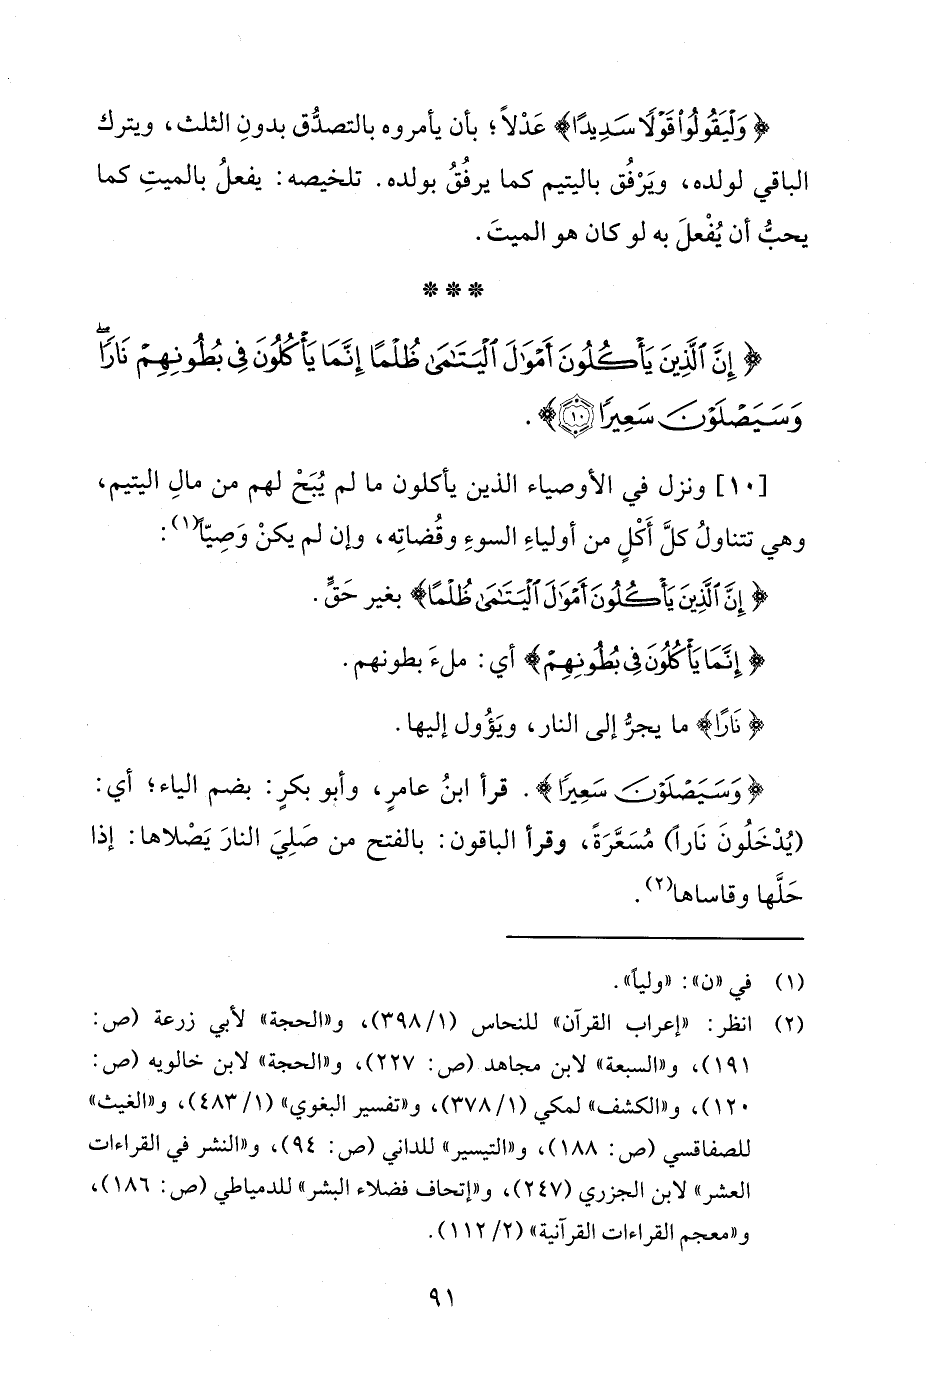 ﴿وَلْيَقُولُوا۟ قَوْلًا سَدِيدًا﴾ عَدْلاً؛ بأن يأمروه بالتصدُّق بدونِ الثلث، ويترك
الباقي لولده، ويَرْفُق باليتيم كما يرفُقُ بولده. تلخيصه: يفعلُ بالميتِ كما
يحبُّ أن يُفْعلَ به لو كان هو الميتَ.
***
﴿إِنَّ ٱلَّذِينَ يَأْكُلُونَ أَمْوَٰلَ ٱلْيَتَٰمَىٰ ظُلْمًا إِنَّمَا يَأْكُلُونَ فِى بُطُونِهِمْ نَارًاۖ
وَسَيَصْلَوْنَ سَعِيرًا ۝١٠﴾.
[١٠] ونزل في الأوصياء الذين يأكلون ما لم يُبَحْ لهم من مالِ اليتيم،
وهي تتناولُ كلَّ أَكْلٍ من أولياءِ السوءِ وقُضاتِه، وإن لم يكنْ وَصِيّاً(١):
﴿إِنَّ ٱلَّذِينَ يَأْكُلُونَ أَمْوَٰلَ ٱلْيَتَٰمَىٰ ظُلْمًا﴾ بغير حَقٍّ.
﴿إِنَّمَا يَأْكُلُونَ فِى بُطُونِهِمْ﴾ أي: ملءَ بطونهم.
﴿نَارًا﴾ ما يجرُّ إلى النار، ويَؤُول إليها.
﴿وَسَيَصْلَوْنَ سَعِيرًا﴾. قرأ ابنُ عامرٍ، وأبو بكرٍ: بضم الياء؛ أي:
(يُدْخَلُونَ نَاراً) مُسَعَّرَةً، وقرأ الباقون: بالفتح من صَلِيَ النارَ يَصْلاها: إذا
حَلَّها وقاساها(٢).
(١) في «ن»: «ولياً».
(٢) انظر: «إعراب القرآن» للنحاس (١/٣٩٨)، و«الحجة» لأبي زرعة (ص:
١٩١)، و«السبعة» لابن مجاهد (ص: ٢٢٧)، و«الحجة» لابن خالويه (ص:
١٢٠)، و«الكشف» لمكي (١/٣٧٨)، و«تفسير البغوي» (١/٤٨٣)، و«الغيث»
للصفاقسي (ص: ١٨٨)، و«التيسير» للداني (ص: ٩٤)، و«النشر في القراءات
العشر» لابن الجزري (٢٤٧)، و«إتحاف فضلاء البشر» للدمياطي (ص: ١٨٦)،
و«معجم القراءات القرآنية» (٢/١١٢).
٩١